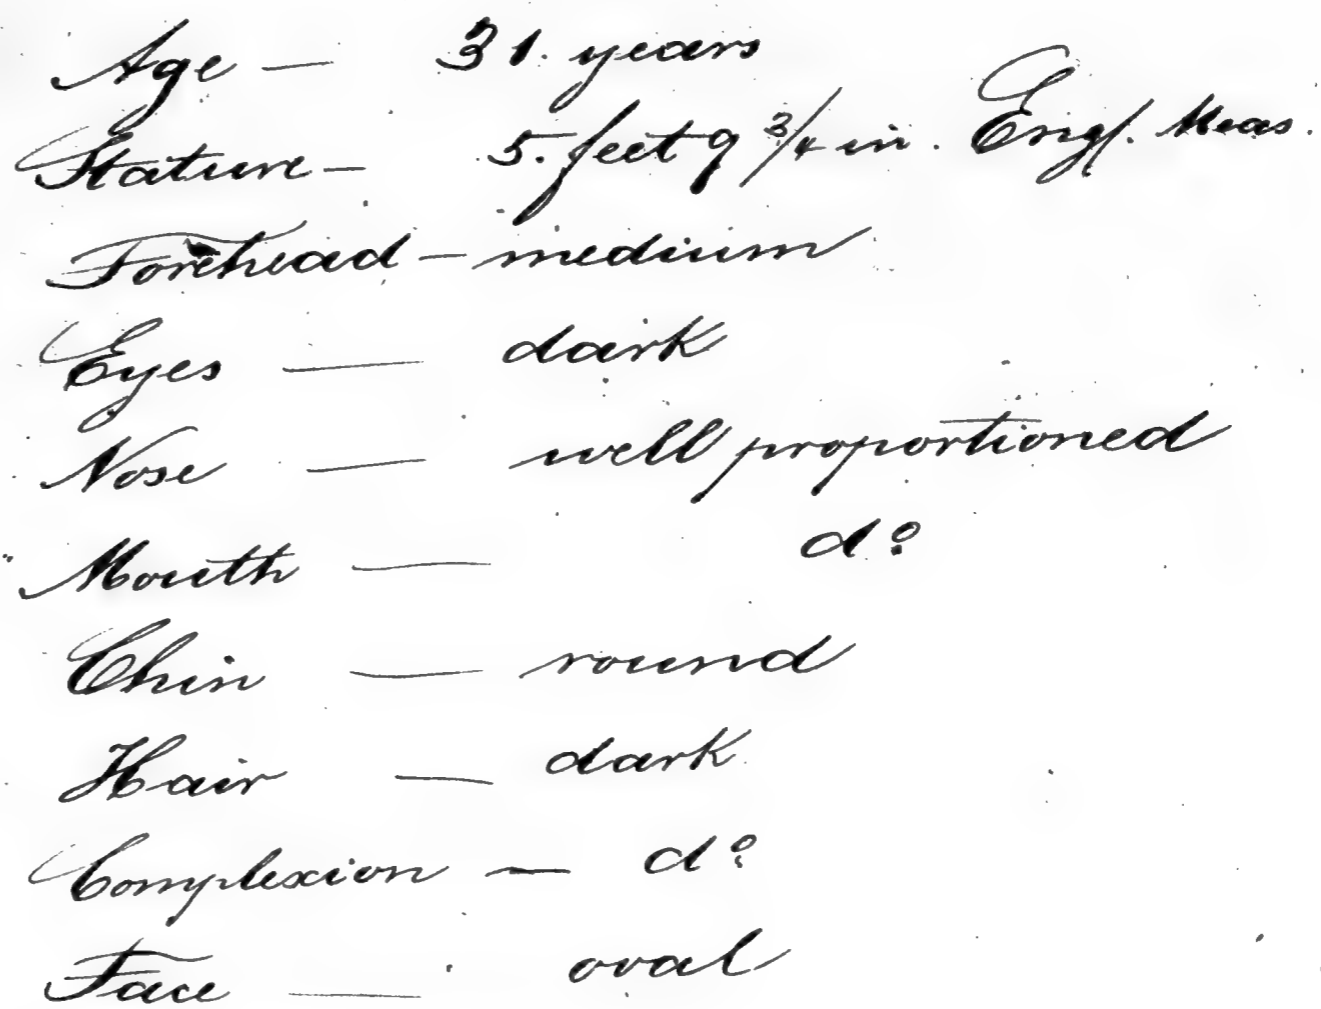 Age — 31. years
Stature — 5. feet 9 3/4 in. Engl. Meas.
Forehead — medium
Eyes — dark
Nose — well proportioned
Mouth — do
Chin — round
Hair — dark
Complexion — do
Face — oval